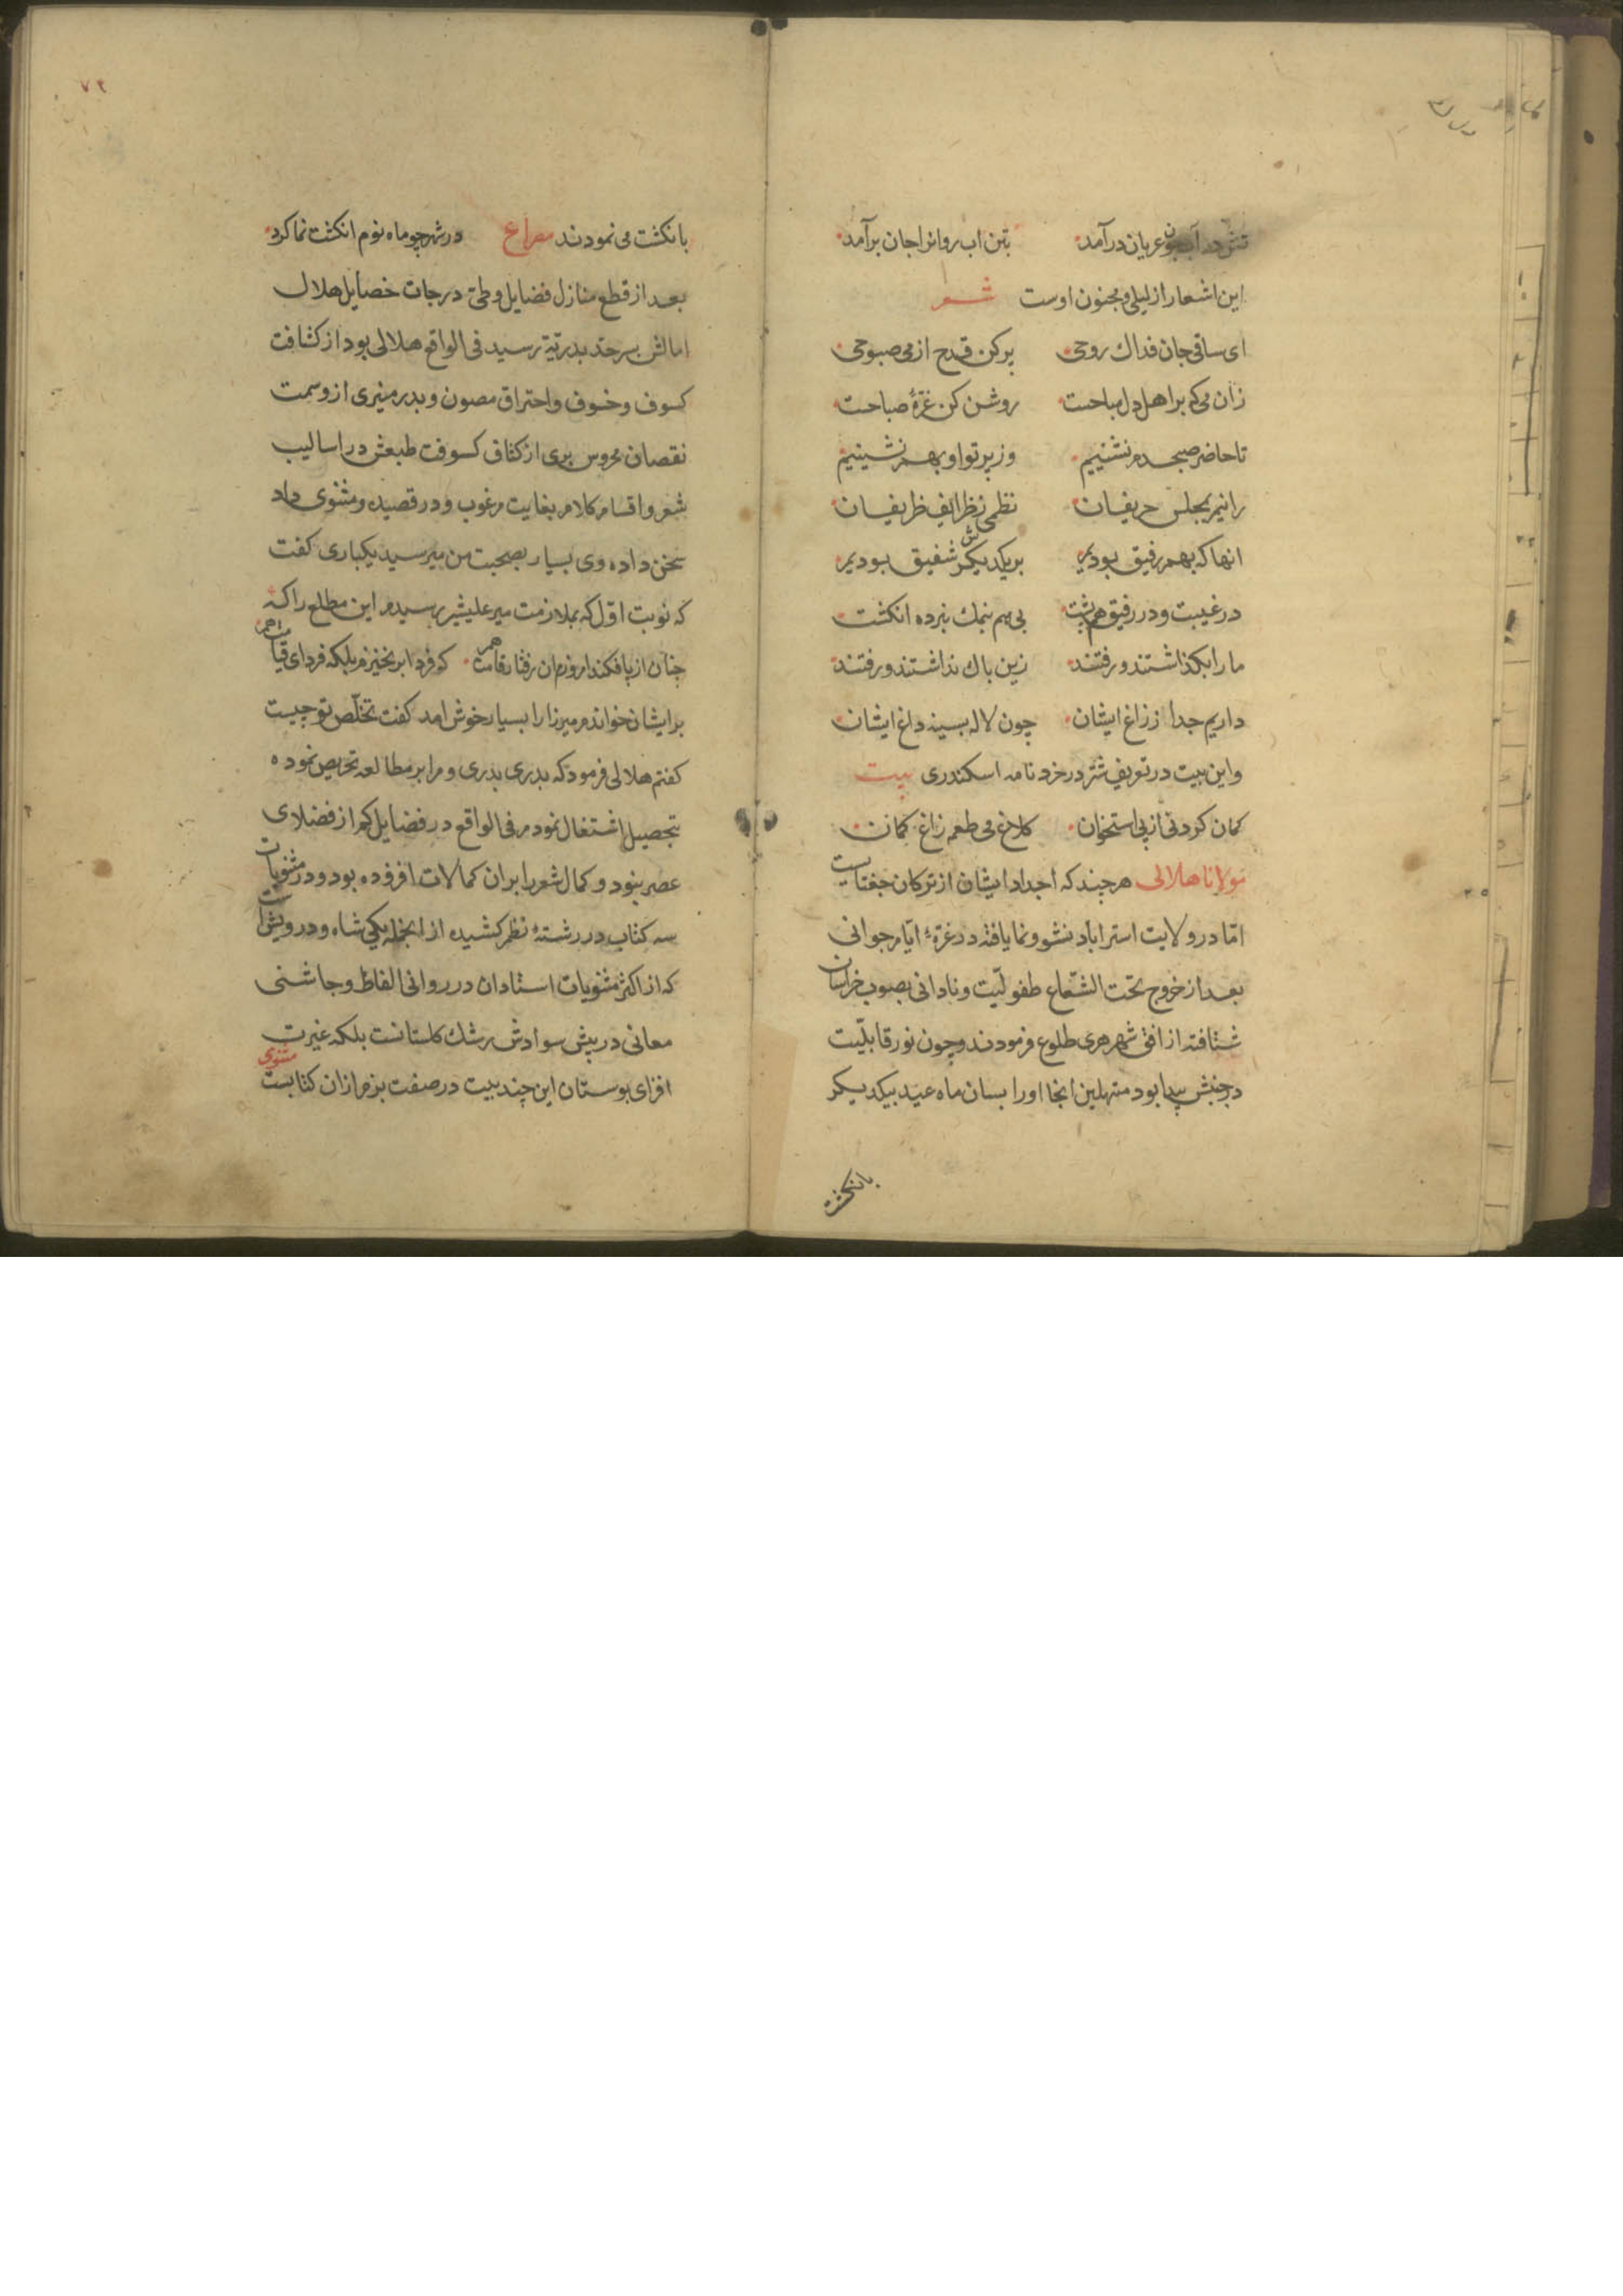 تنش در آب چون عریان درآمد بتن اب روانرا جان برآمد
این اشعار از لیلی و مجنون اوست شعر
ای ساقی جان فداک روحی پر کن قدح از می صبوحی
زان می که بر اهل دل مباحست روشن کن غرّهٔ صباحست
تا حاضر صبحدم نشینیم وز پرتو او بهم نشینیم
رانیم بمجلس حریفان نظمی ز ظرایف ظریفان
انها که بهم رفیق بودیم بر یکدیکر شفیق بودیم
در غیبت ودر رفیق هم پشت بی هم بنمک نبرده انکشت
ما را بکذاشتند و رفتند زین باک نداشتند و رفتند
داریم جدا ز زاغ ایشان چون لاله بسینه داغ ایشان
واین بیت در تعریف شتر در خردنامه اسکندری بیت
کمان کردنی از پی استخوان کلاغ می طعمه زاغ کمان
مولانا هلالی هرچند که اجداد ایشان از ترکان جغتایست
امّا در ولایت استراباد نشو ونما یافته در غرّهٔ ایّام جوانی
بعد از خروج تحت الشّعاع طفولّیت و نادانی بصوب خراسان
شتافته از افق شهر هری طلوع فرمودند و چون نور قابلّیت
در جنبش پیدا بود مستهلین انجا اورا بسان ماه عید بیکدیکر
بانکشت
۷۲
بانکشت می نمودند مصراع در شهر چو ماه نوم انکشت نما کرد
بعد از قطع منازل فضایل وطیّ درجات خصایل هلال
امالش بسرحد بدریّة رسید فی الواقع هلالی بود از کثافت
کسوف وخسوف واحتراق مصون وبدر منیری از وسمت
نقصان محروس بری از کثاف کسوفت طبعش در اسالیب
شعر واقسام کلام بغایت مرغوب ودر قصیده ومثنوی داد
سخن داده وی بسیار بصحبت من میرسید یکباری کفت
که نوبت اوّل که بملازمت میر علیشیر رسیدم این مطلع را که
چنان از پا فکند امروزم ان رفتار قامت هم که فردا برنخیزم بلکه فردای قیامت هم
برایشان خواندم میرزا را بسیار خوش امد کفت تخلّص تو چیست
کفتم هلالی فرمود که بدری بدری ومرا بر مطالعه تحریص نموده
بتحصیل اشتغال نمودم فی الواقع در فضایل کم از فضلای
عصر نبود و کمال شعر را بران کمالات افزوده بود ودر مثنویات
سه کتاب در رشتهٔ نظم کشیده از انجمله یکی شاه ودرویش است
که از اکثر مثنویات استادان در روانی الفاظ وچاشنی
معانی در پیش سوادش رشک کلستانست بلکه غیرت
افزای بوستان این چند بیت در صفت بزم ازان کتابست مثنوی